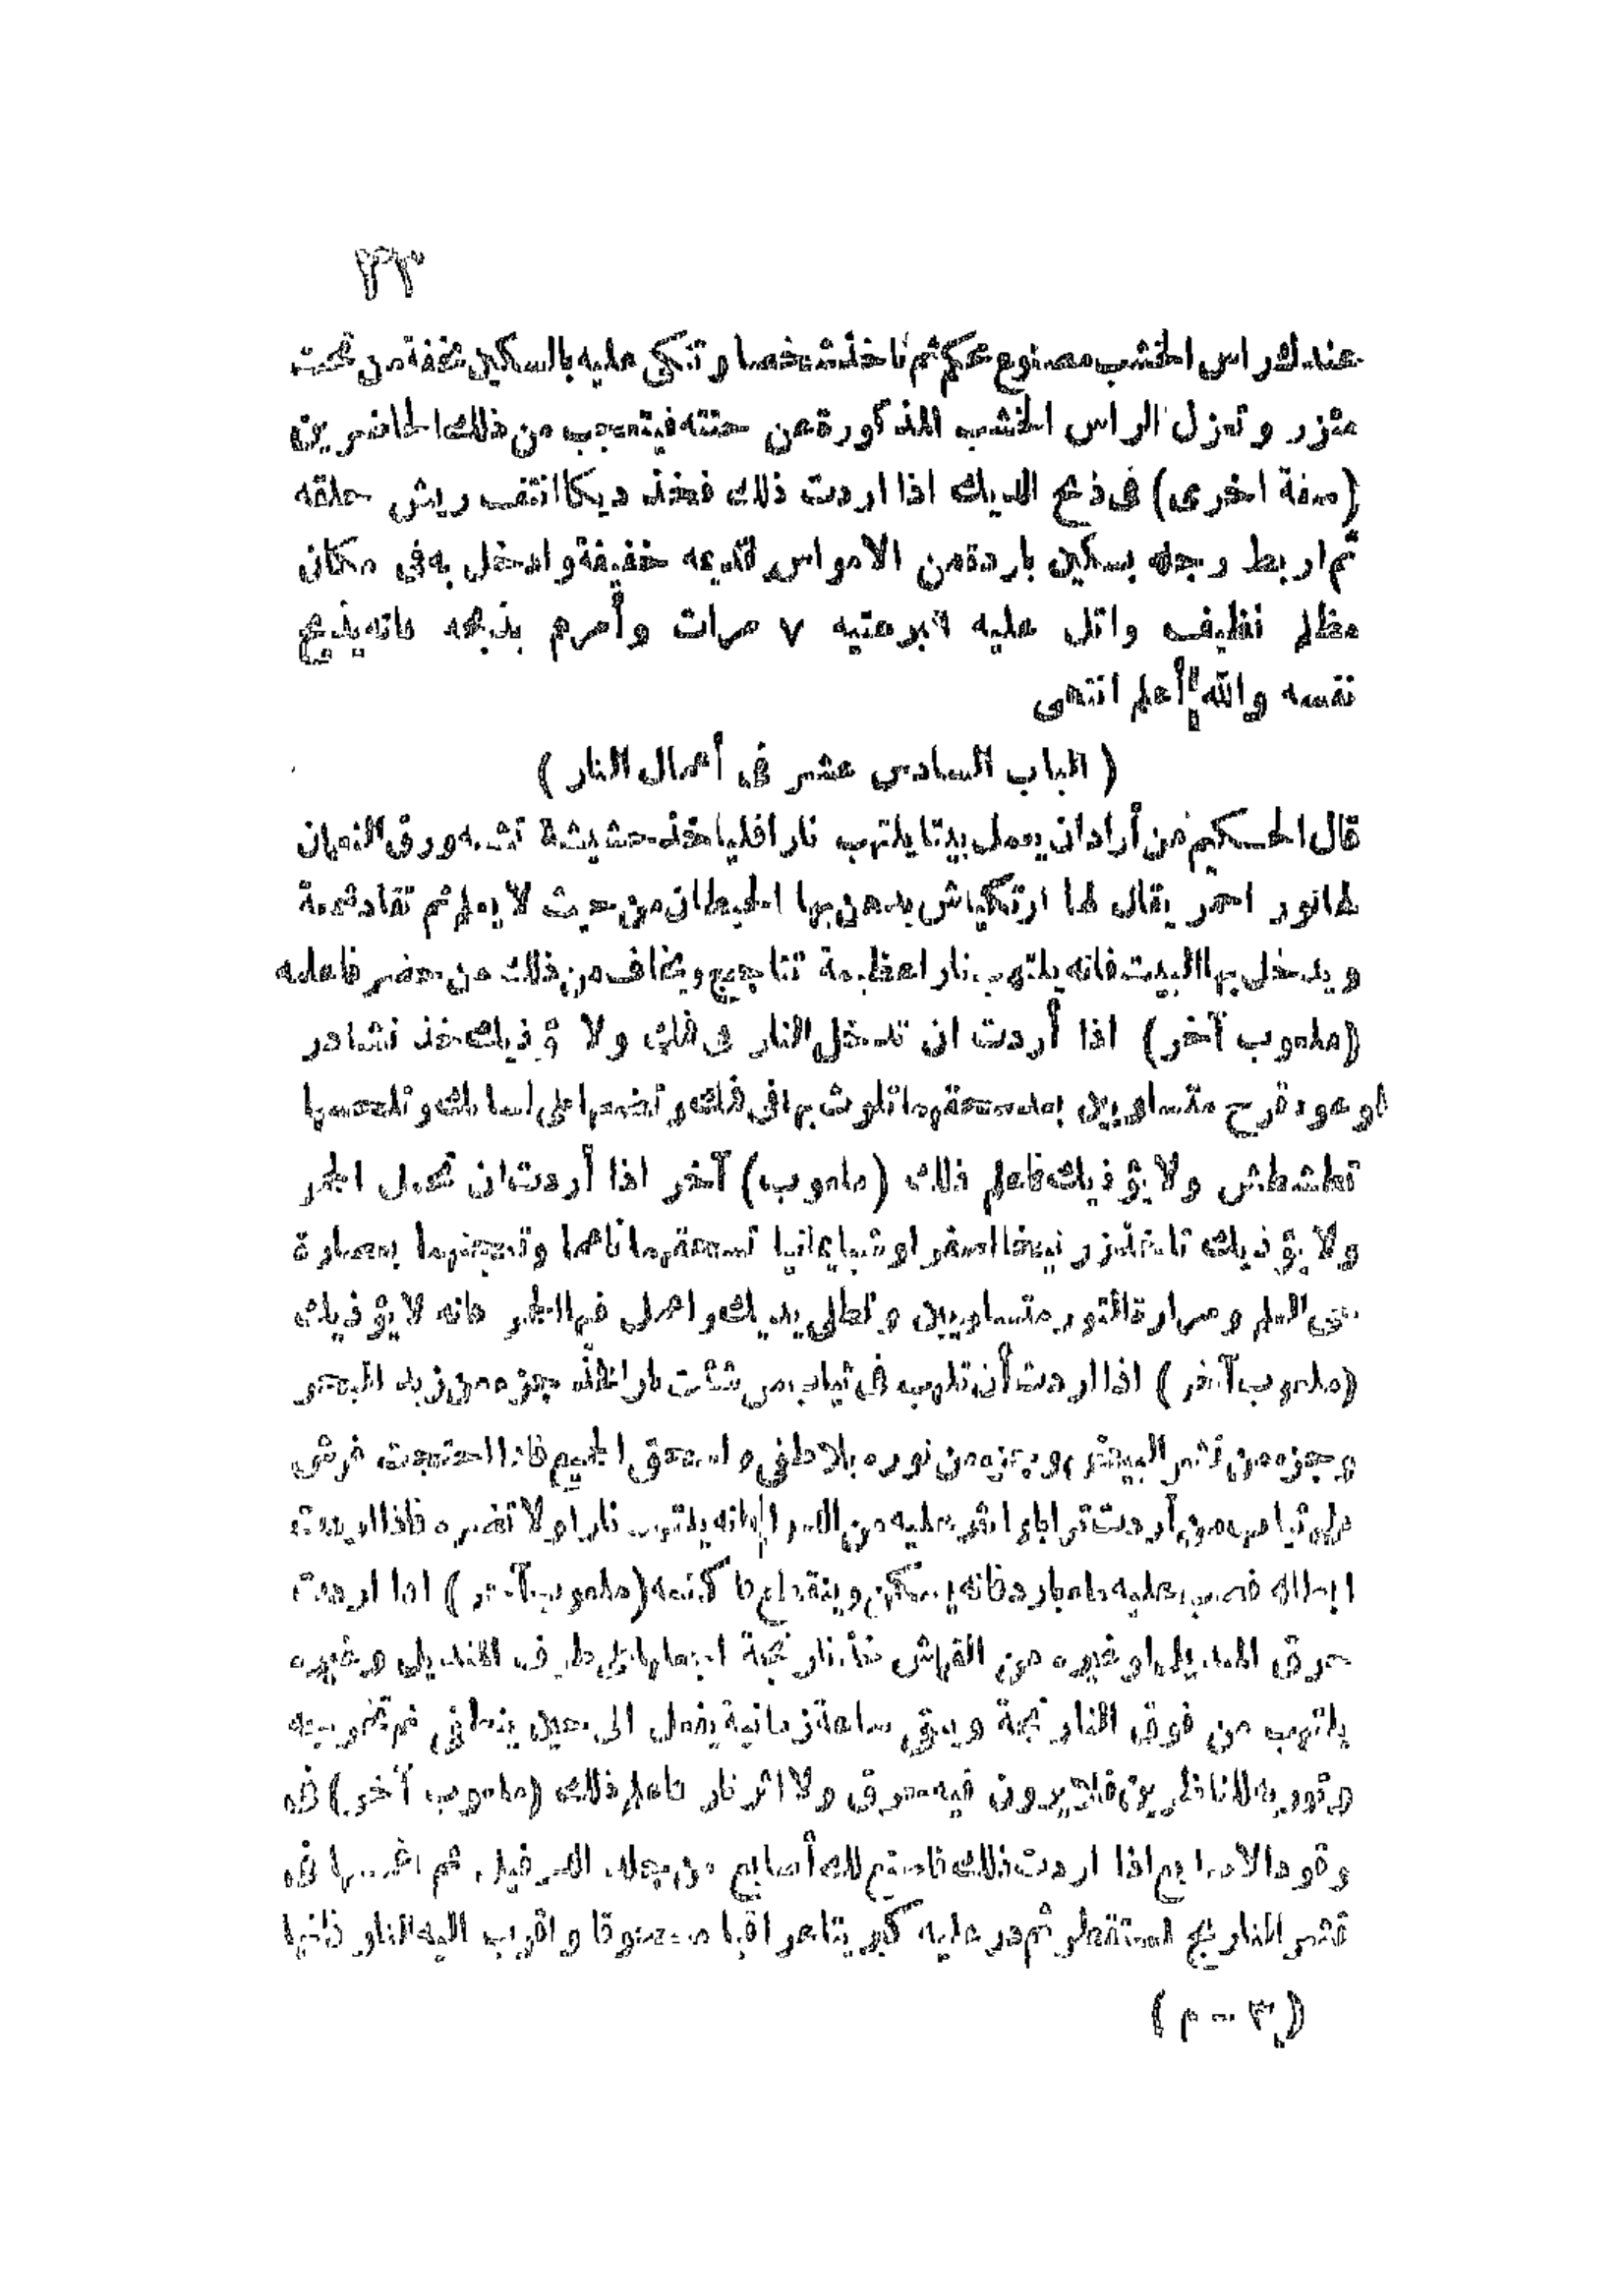 ٣٣
عندك راس الخشب مصنوع محكم ثم تاخذ شخصا وتتكى عليه بالسكين مخفة من تحت
مئزر وتعزل الراس الخشب المذكورة عن جنته فيتعجب من ذلك الحاضرين
(صفة اخرى) فى ذبح الديك اذا اردت ذلك فخذ ديكا انتف ريش حلقه
ثم اربط رجله بسكين باردة من الامواس خفيفة وادخل به فى مكان
مظلم نظيف واتل عليه ٧ مرات وأمرم بذبحه فانه يذبح
نفسه والله أعلم انتهى
(الباب السادس عشر فى أعمال النار)
قال الحكيم من أراد ان يعمل بيتا يلتهب نارا فلياخذ حشيشة تشبه ورق النعمان
لها نور احمر يقال لها ارتكياش يدهن بها الحيطان من حيث لا يعلم ثم تقاد شمعة
ويدخل بها البيت فانه يلتهب نارا عظيمة تتاجج ويخاف من ذلك من حضر فاعله
(ملعوب آخر) اذا أردت ان تدخل النار فى فمك ولا تؤذيك خذ نشادر
او عود قرح متساويين بعد سحقهما تلوث بها فى فمك وتضعها على لسانك وتلحسها
تطشطش ولا يؤذيك فاعلم ذلك (ملعوب) آخر اذا أردت ان تحمل الجمر
ولا يؤذيك تاخذ زرنيخا اصفر او شبا يمانيا تسحقهما ناعما وتعجنهما بعصارة
حى العلم ومرارة الثور متساويين وتطلى يديك واحمل فيها الجمر فانه لا يؤذيك
(ملعوب آخر) اذا اردت أن تلهب فى ثياب من شئت نارا فخذ جزء من زبد البحر
وجزء من قشر البيض وجزء من نوره بلا طفى واسحق الجميع فاذا احتجت فرش
على ثياب من أردت ترابا وانثر عليه من الدوا فانه يلتهب نارا ولا تضره فاذا اردت
ابطاله فصب عليه ماء باردا فانه يسكن وينقطع ما كنه (ملعوب آخر) اذا اردت
حرق المنديل او غيره من القماش خذ نار نجة اجعلها على طرف المنديل وغيره
يلتهب من فوق النار نجة ويبقى ساعة زمانية يفعل الى حين ينطفى ثم تخربيه
وتوريه للناظرين فلا يرون فيه حرق ولا اثر نار فاعلم ذلك (ملعوب آخر) فى
وقود الاصابع اذا اردت ذلك فاصنع لك أصابع من جلد ثم اغمسها فى
قشر النارنج المستقطر ثم در عليه كبريتا عراقيا مسحوقا واقرب اليه النار فانها
(٣ - م)